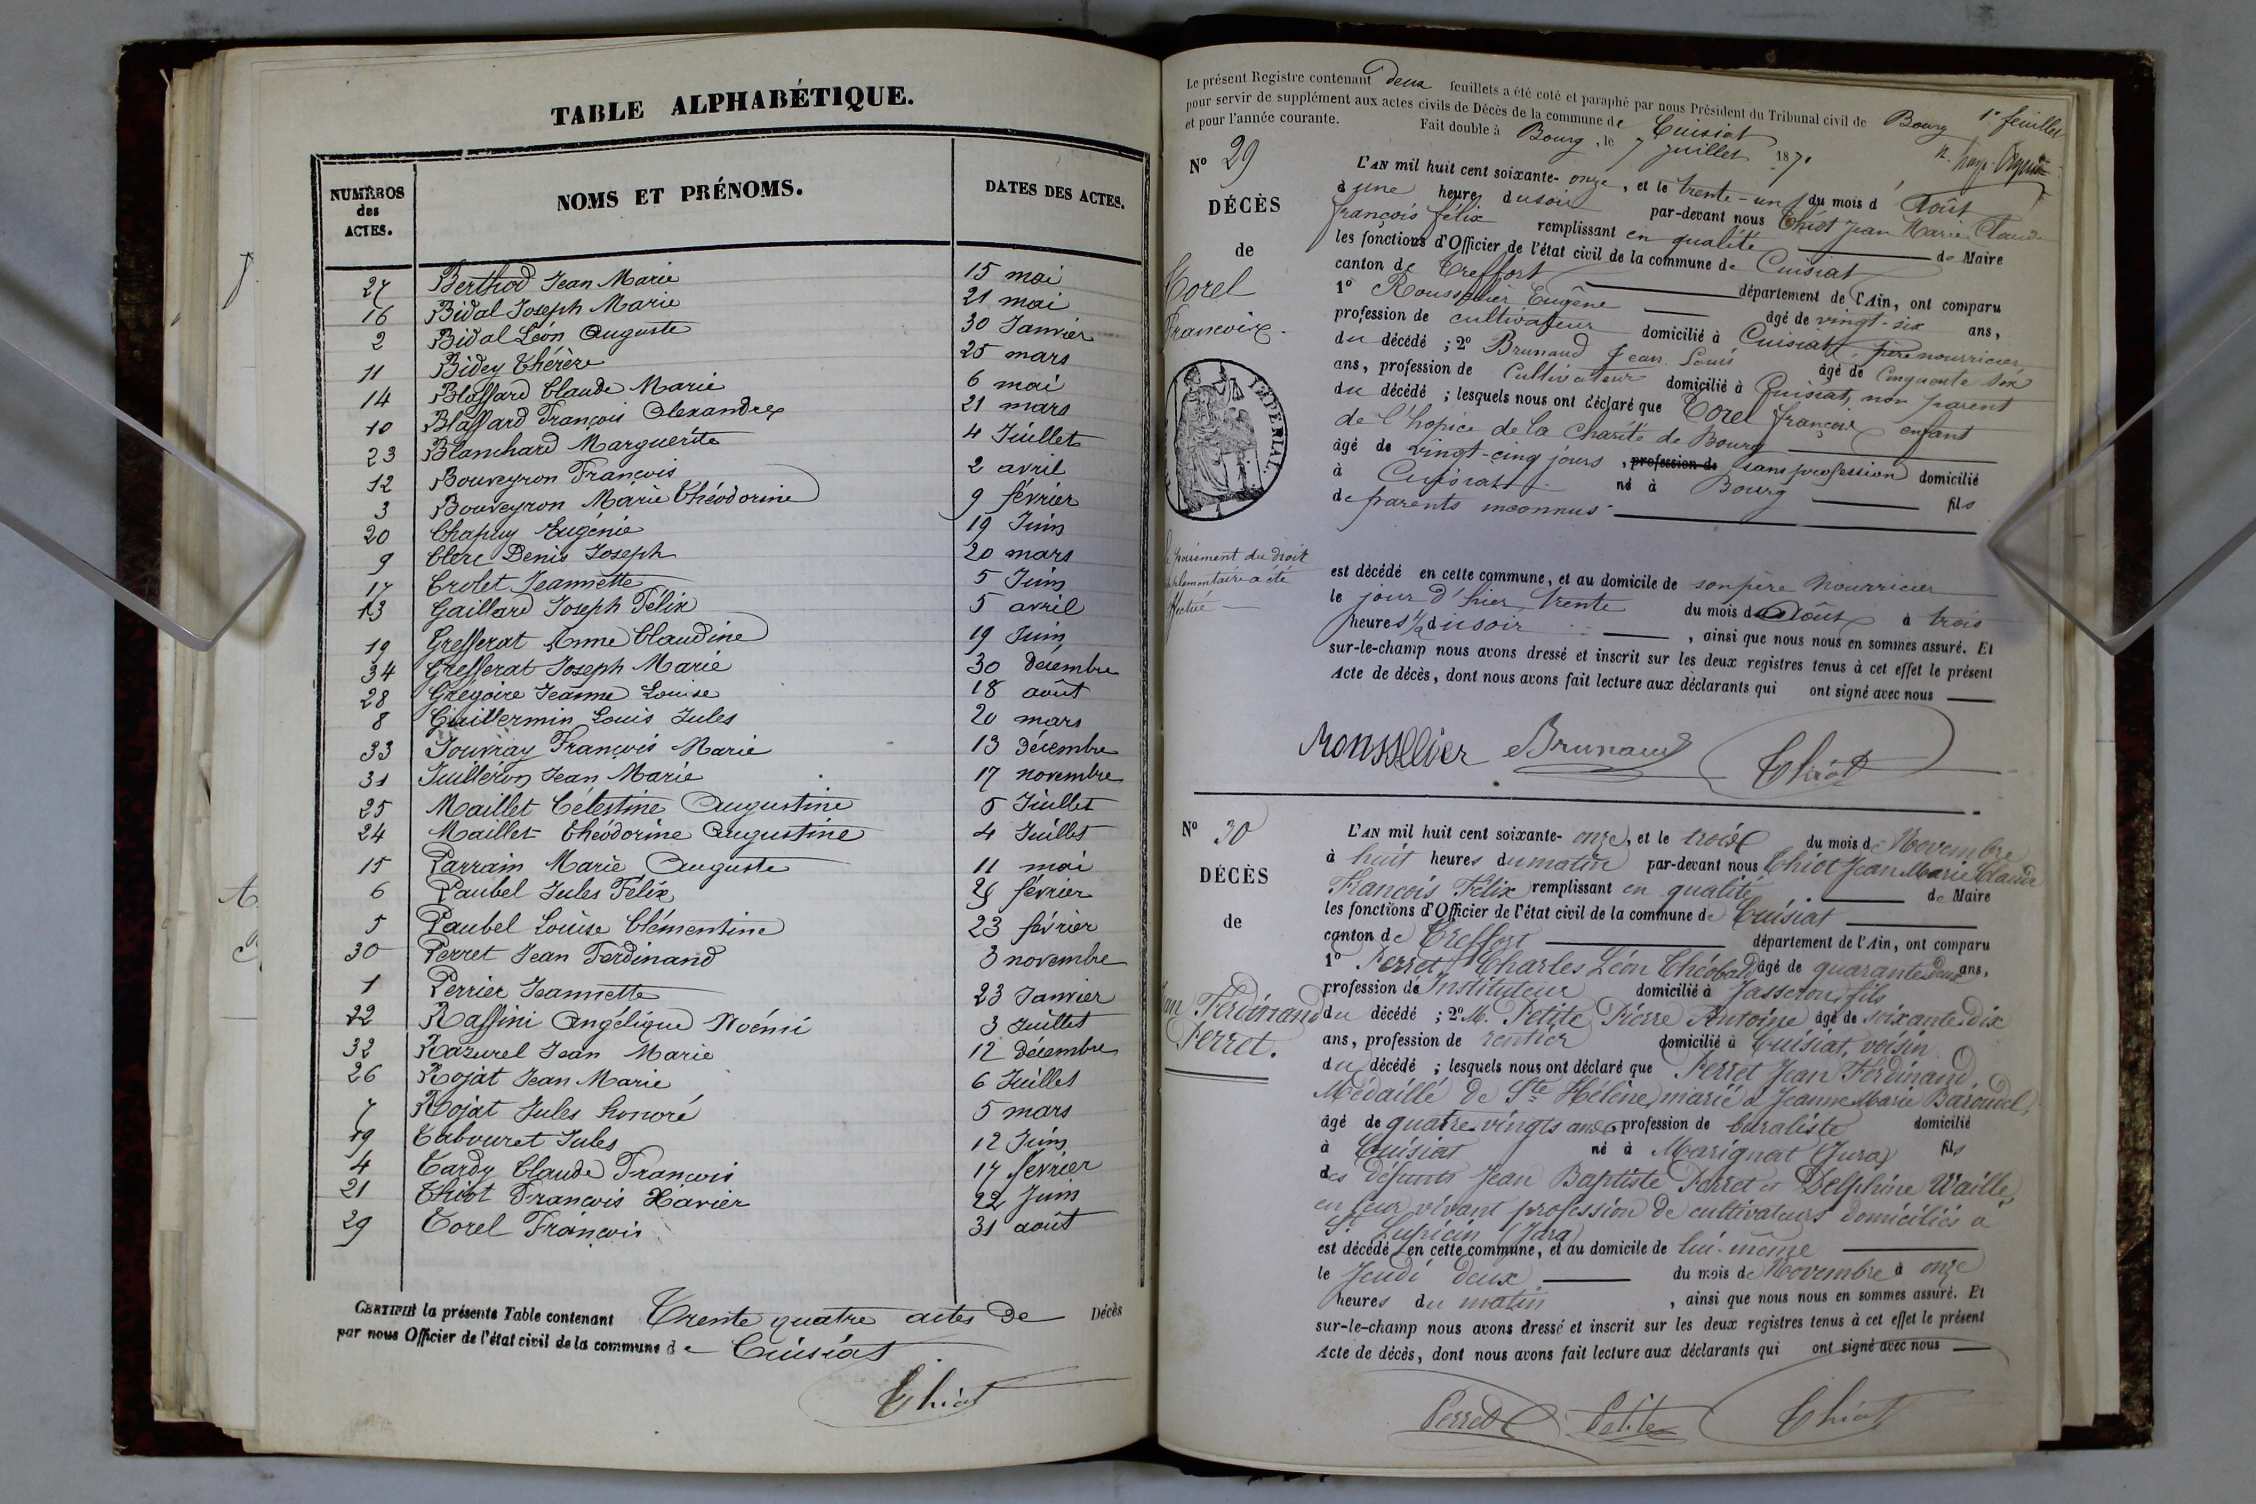 TABLE ALPHABÉTIQUE.
NUMÉROS des ACTES. NOMS ET PRÉNOMS. DATES DES ACTES.
27 Berthod Jean Marie 15 mai
16 Bidal Joseph Marie 21 mai
2 Bidal Léon Auguste 30 Janvier
11 Bidey Thérère 25 mars
14 Blaffard Claude Marie 6 mai
10 Blaffard François Alexandre 21 mars
23 Blanchard Marguerite 4 Juillet
12 Bouveyron François 2 avril
3 Bouveyron Marie Théodorine 9 février
20 Chapuy Eugénie 19 Juin
9 Clerc Denis Joseph 20 mars
17 Crolet Jeannette 5 Juin
13 Gaillard Joseph Félix 5 avril
19 Grefferat Anne Claudine 19 Juin
34 Grefferat Joseph Marie 30 décembre
28 Grégoire Jeanne Louise 18 août
8 Guillermin Louis Jules 20 mars
33 Jouvray François Marie 13 décembre
31 Juilléron Jean Marie 17 novembre
25 Maillet Célestine Augustine 5 Juillet
24 Maillet Théodorine Augustine 4 Juillet
15 Parrain Marie Auguste 11 mai
6 Paubel Jules Félix 25 février
5 Paubel Louise Clémentine 23 février
30 Perret Jean Ferdinand 3 novembre
1 Perrier Jeannette 23 Janvier
22 Raffini Angélique Noémi 3 Juillet
32 Razurel Jean Marie 12 décembre
26 Rojat Jean Marie 6 Juillet
7 Rojat Jules honoré 5 mars
19 Tabouret Jules 12 Juin
4 Tardy Claude François 17 février
21 Thiot François Xavier 22 Juin
29 Torel François 31 août
CERTIFIÉ la présente Table contenant Trente quatre actes de Décès
par nous Officier de l'état civil de la commune de Cuisiat
Thiot
Le présent Registre contenant deux feuillets a été coté et paraphé par nous Président du Tribunal civil de Bourg
1er feuillet
pour servir de supplément aux actes civils de Décès de la commune de Cuisiat
et pour l'année courante. Fait double à Bourg, le 7 juillet 1871
N° 29
DÉCÈS
de
Torel
Francoix.
IMPÉRIAL.
L'AN mil huit cent soixante-onze, et le trente-un du mois d Août
à une heure du soir par-devant nous Thiot Jean Marie Claude
françois félix remplissant en qualité de Maire
les fonctions d'Officier de l'état civil de la commune de Cuisiat
canton de Treffort département de l'Ain, ont comparu
1° Rousselier Eugêne âgé de vingt-six ans,
profession de cultivateur domicilié à Cuisiat, père nourricier
du décédé ; 2° Brunaud Jean Louis âgé de Cinquante six
ans, profession de Cultivateur domicilié à Cuisiat, non parent
du décédé ; lesquels nous ont déclaré que Torel françois enfant
de l'hopice de la Charité de Bourg
âgé de vingt-cinq jours, profession de sans profession domicilié
à Cuisiat né à Bourg fils
de parents inconnus
est décédé en cette commune, et au domicile de son père Nourricier
le jour d'hier trente du mois d Août à trois
heures ½ du soir, ainsi que nous nous en sommes assuré. Et
sur-le-champ nous avons dressé et inscrit sur les deux registres tenus à cet effet le présent
Acte de décès, dont nous avons fait lecture aux déclarants qui ont signé avec nous
Rousselier Brunaud Thiot
N° 30
DÉCÈS
de
Ferdinand
Perret.
L'AN mil huit cent soixante-onze, et le trois du mois de Novembre
à huit heures du matin par-devant nous Thiot Jean Marie Claude
François Félix remplissant en qualité de Maire
les fonctions d'Officier de l'état civil de la commune de Cuisiat
canton de Treffort département de l'Ain, ont comparu
1° Perret Charles Léon Théobald âgé de quarante deux ans,
profession de Instituteur domicilié à Jasseron, fils
du décédé ; 2° M. Petite Pierre Antoine âgé de soixante dix
ans, profession de rentier domicilié à Cuisiat, voisin
du décédé ; lesquels nous ont déclaré que Perret Jean Ferdinand,
Médaillé de Ste Hélène, marié à Jeanne Marie Baroudel,
âgé de quatre vingts ans profession de buraliste domicilié
à Cuisiat né à Marignat (Jura) fils
des défunts Jean Baptiste Perret et Delphine Waille,
en leur vivant profession de cultivateurs domiciliés à
St Lupicin (Jura)
est décédé en cette commune, et au domicile de lui-même
le Jeudi deux du mois de Novembre à onze
heures du matin, ainsi que nous nous en sommes assuré. Et
sur-le-champ nous avons dressé et inscrit sur les deux registres tenus à cet effet le présent
Acte de décès, dont nous avons fait lecture aux déclarants qui ont signé avec nous
Perret Petite Thiot